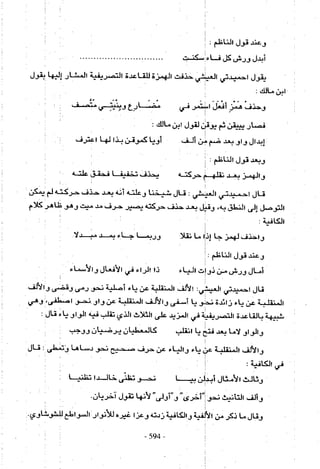 وعند قول الناظم :
أبدل ورش كل فـــاء سكنـــت
يقول احميدتي العيشي حذفت الهمزة للقاعدة التصريفية المشار إليها بقول
ابن مالك :
وحذف همز أفعل استمر في مضـــارع وبنيتـــي متصـــف
فصار يبيقن ثم يوقن لقول ابن مالك :
إبدال واو بعد ضم من ألـــف ويا كموقن بذا لها اعترف
وبعد قول الناظم :
والهمز بعد نقلـــهم حركتـــه يحذف تخفيفـــا فحقق علتـــه
قال احميدتي العيشي : قال شيخنا وعلته أنه بعد حذف حركته لم يمكن
التوصل إلى النطق به، وقيل بعد حذف حركته يصير حرف مد وهو ظاهر كلام
الكافية :
واحذف لهمز حل إذ ما نقلا وربمـــا جـــاء بمـــد بـــدلا
وعند قول الناظم :
أمـــال ورش من ذوات اليـــاء ذا الراء في الأفعـــال والأسمـــاء
قال احميدتي العيشي: الألف المنقلبة عن ياء أصلية نحو رمى وقضى والألف
المنقلبة عن ياء زائدة نحو يا أسفى والألف المنقلبة عن واو نحو اصطفى، وهي
شبيهة بالقاعدة التصريفية في المزيد على الثلاث الذي تقلب فيه الواو ياء قال :
والواو لاما بعد فتح يا انقلب كالمعطيان يرضيان ووجب
والألف المنقلبة عن ياء والياء عن حرف صحيح نحو دساها وتمطى: قال
في الكافية :
وثالث الأمثال أبدلن بيـــا نحـــو تظنى خالـــدا تظنيـــا
وألف التأنيث نحو "أخرى" و"أولى" لأنها تقول أخريان.
وقال ما ذكر من الألفية والكافية زدته وعز غيره لأنوار السواطع للشوشاوي.
- 594 -